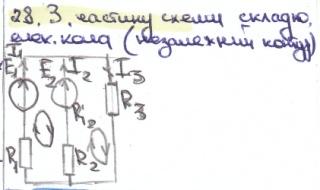 28.З. частину схеми складно,
елек. кола (незалежний контур)
I₁
E₁ E₂ I₂ I₃
R₃
R₁ R₂